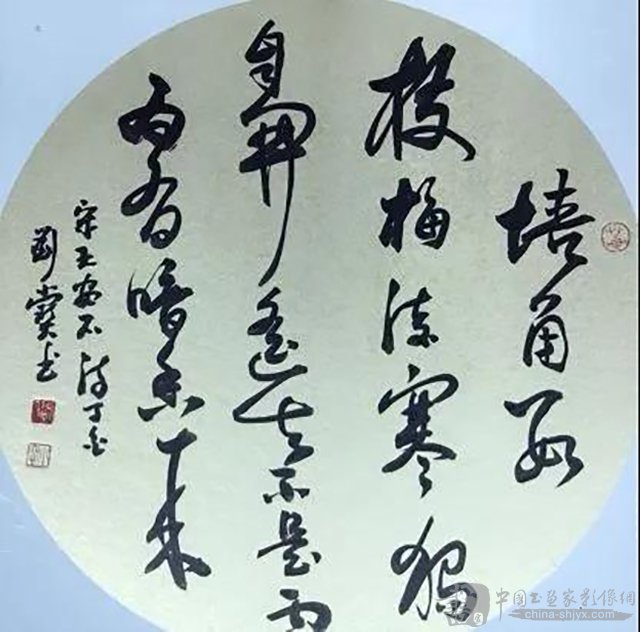 墙角数
枝梅凌寒独
自開遥知不是雪
为有暗香来
宋王安石诗丁酉
书
中国书画家影像網
china-shjyx.com